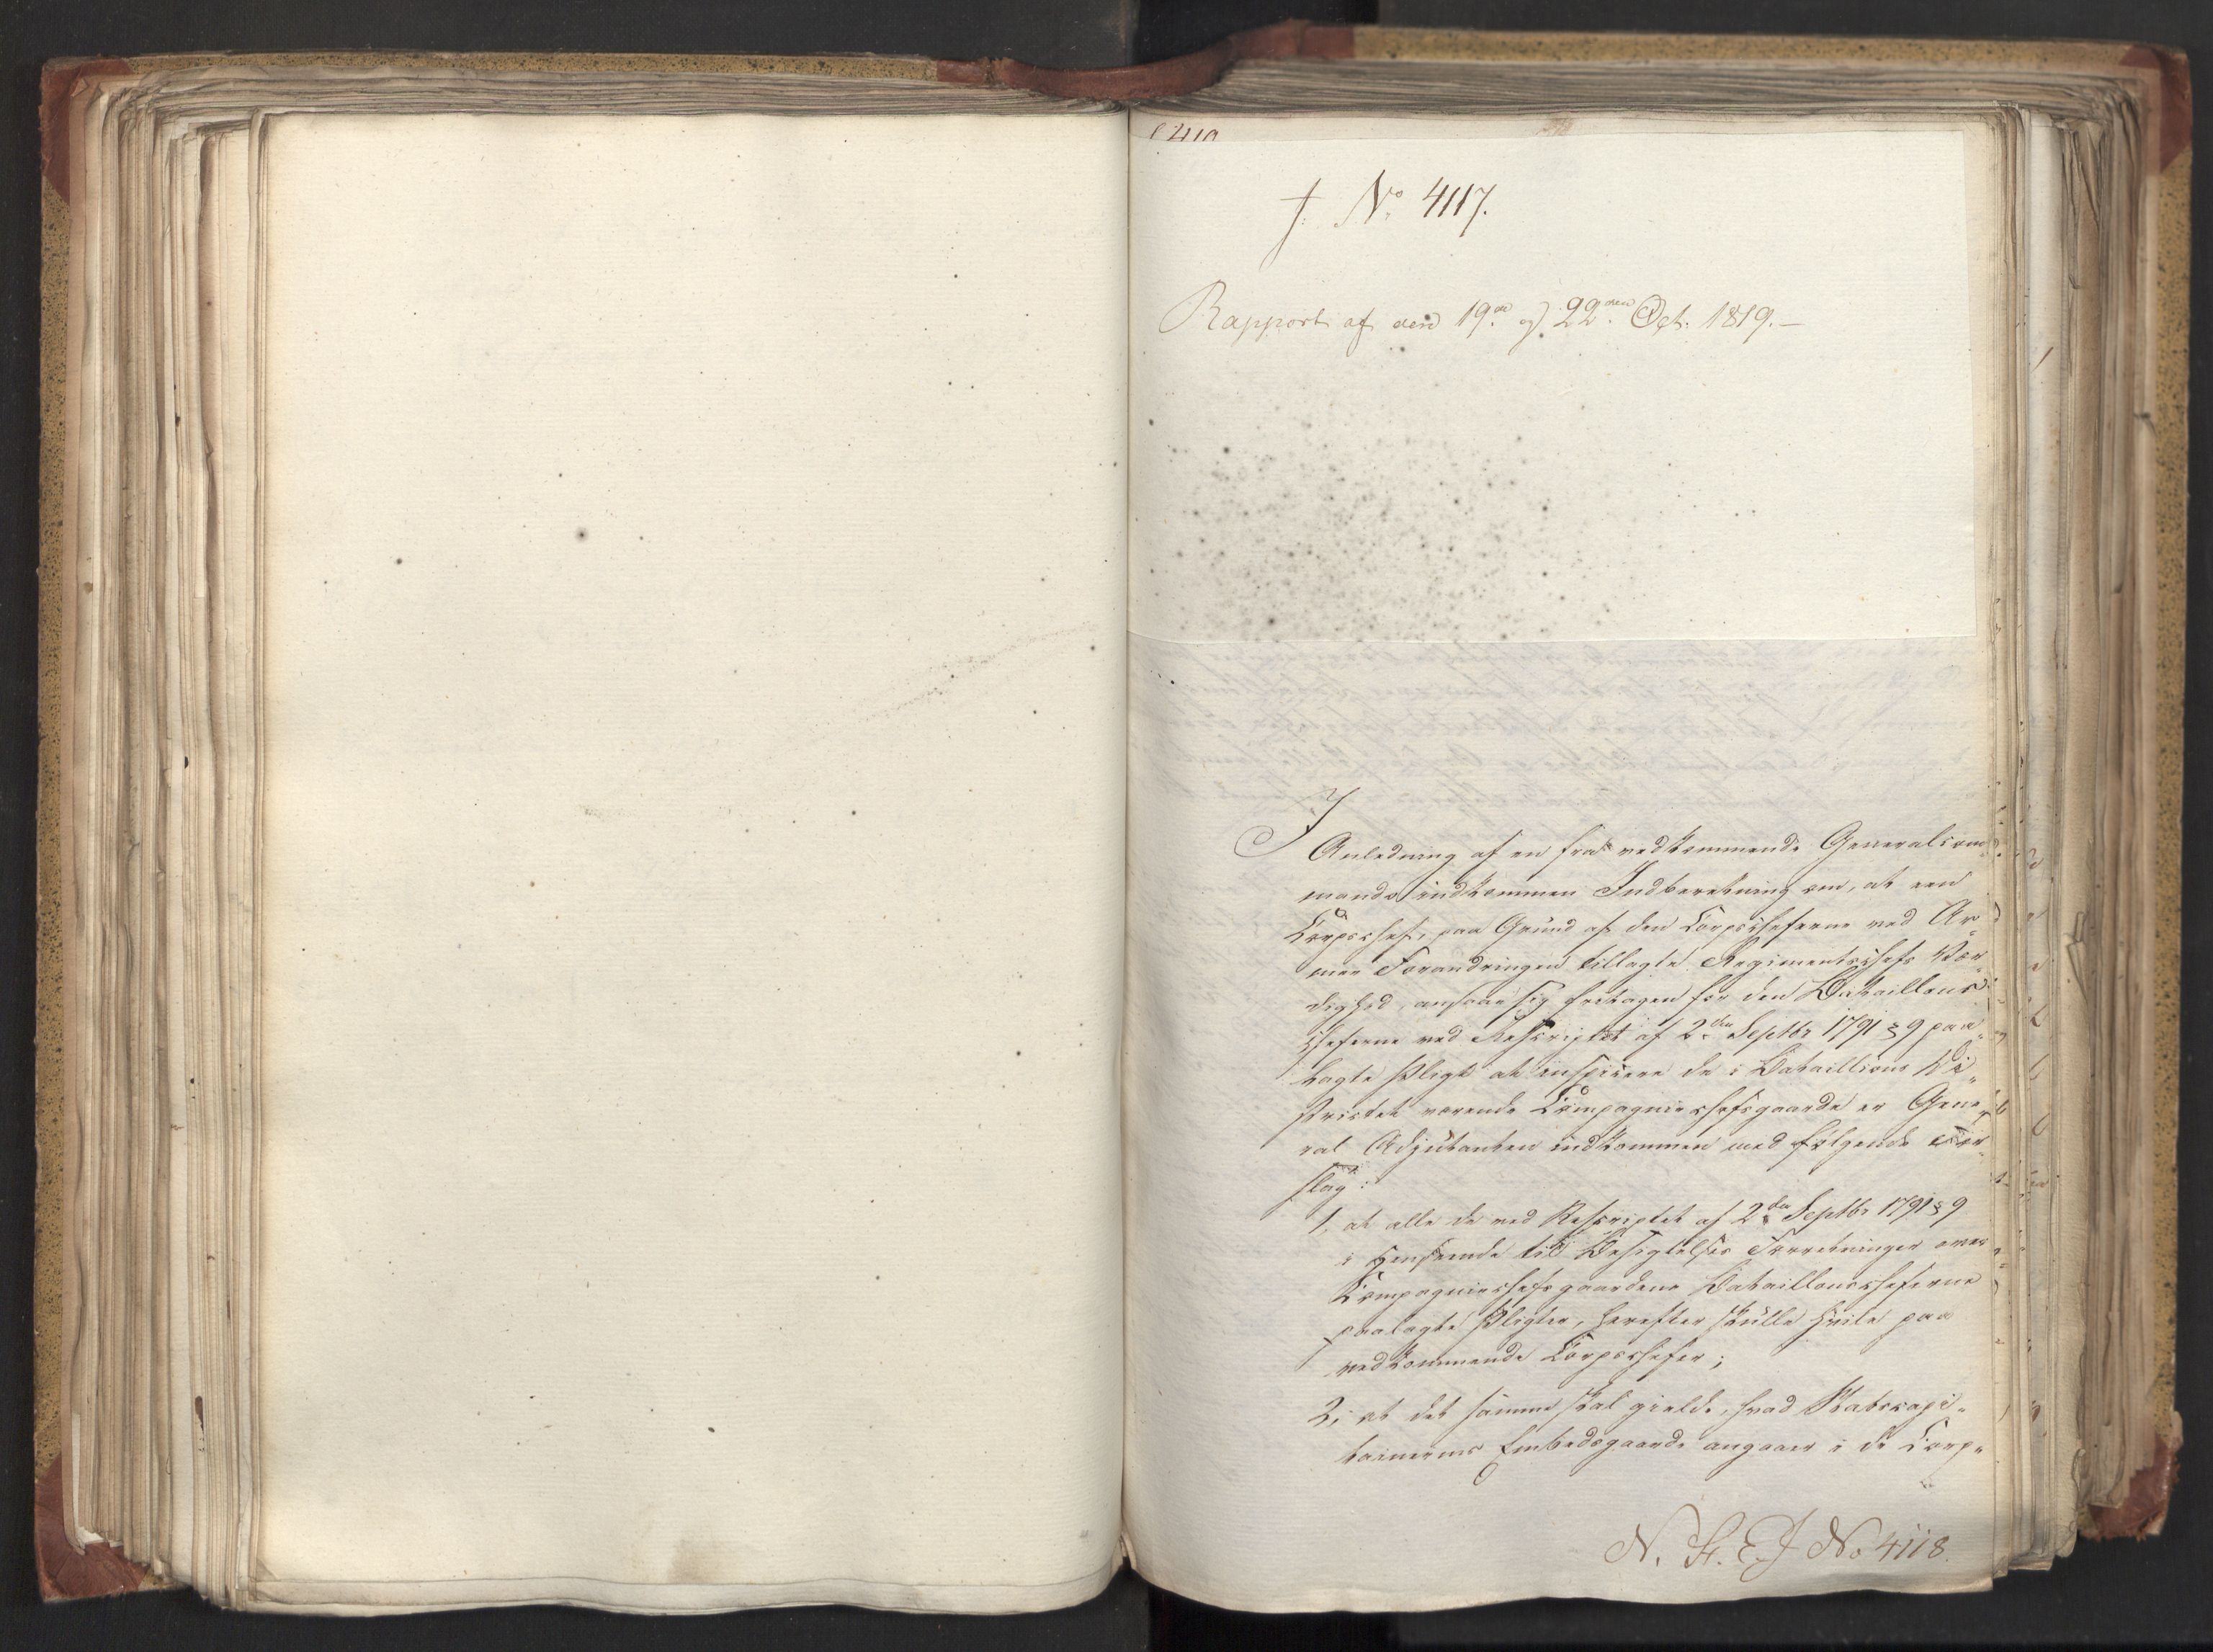 f. No 4117.
Rapport af den 19de og 22den Oct. 1819.—
I
Anledning af en fra vedkommende Generalcom
mando indkommen Indberetning om, at een
Corpschef, paa Grund af den Corpscheferne ved Ar„
mee Forandringen tillagte Regimentschefs Vær„
dighed, ansaae sig fritagen for den Bataillons
cheferne ved Rescriptet af 2den Septbr 1791 § 9 paa„
lagte Pligt at inspicere de i Bataillions Di„
strictet værende Compagniechefsgaarde er Gene„
ral Adjutanten indkommen med følgende For„
slag:
1, at alle de ved Rescriptet af 2den Septbr 1791 § 9
i Henseende til Besigtelses Forretninger over
Compagniechefsgaardene Bataillonscheferne
paalagte Pligter, herefter skulle hvile paa
vedkommende Corpschefer;
2, at det samme skal gielde, hvad Statscapi„
tainernes Embedsgaarde angaaer i de Corp„
N. St. E. J No 4118.